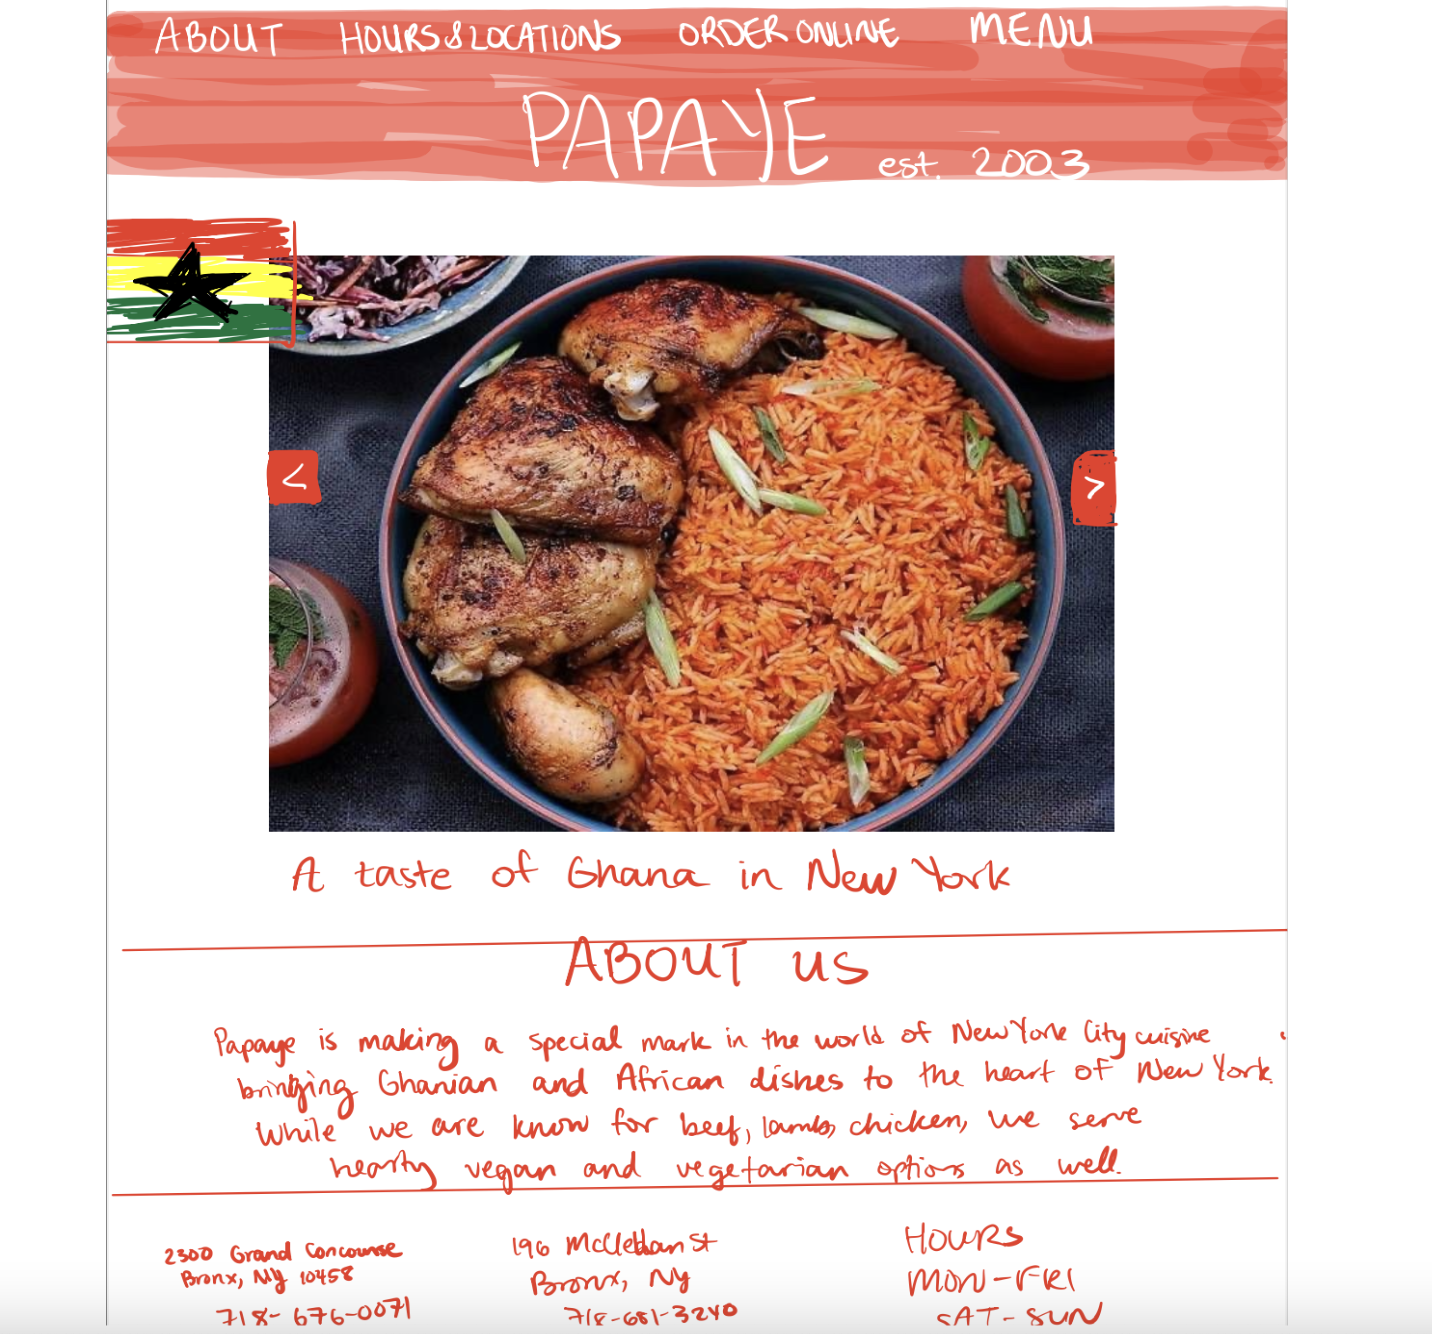 ABOUT HOURS & LOCATIONS ORDER ONLINE MENU
PAPAYE
est. 2003
<
>
A taste of Ghana in New York
ABOUT US
Papaye is making a special mark in the world of New York City cuisine
bringing Ghanian and African dishes to the heart of New York.
While we are know for beef, lamb, chicken, we serve
hearty vegan and vegetarian options as well.
2300 Grand Concourse
Bronx, NY 10458
718-676-0071
196 McClellan St
Bronx, NY
718-681-3240
HOURS
MON-FRI
SAT-SUN